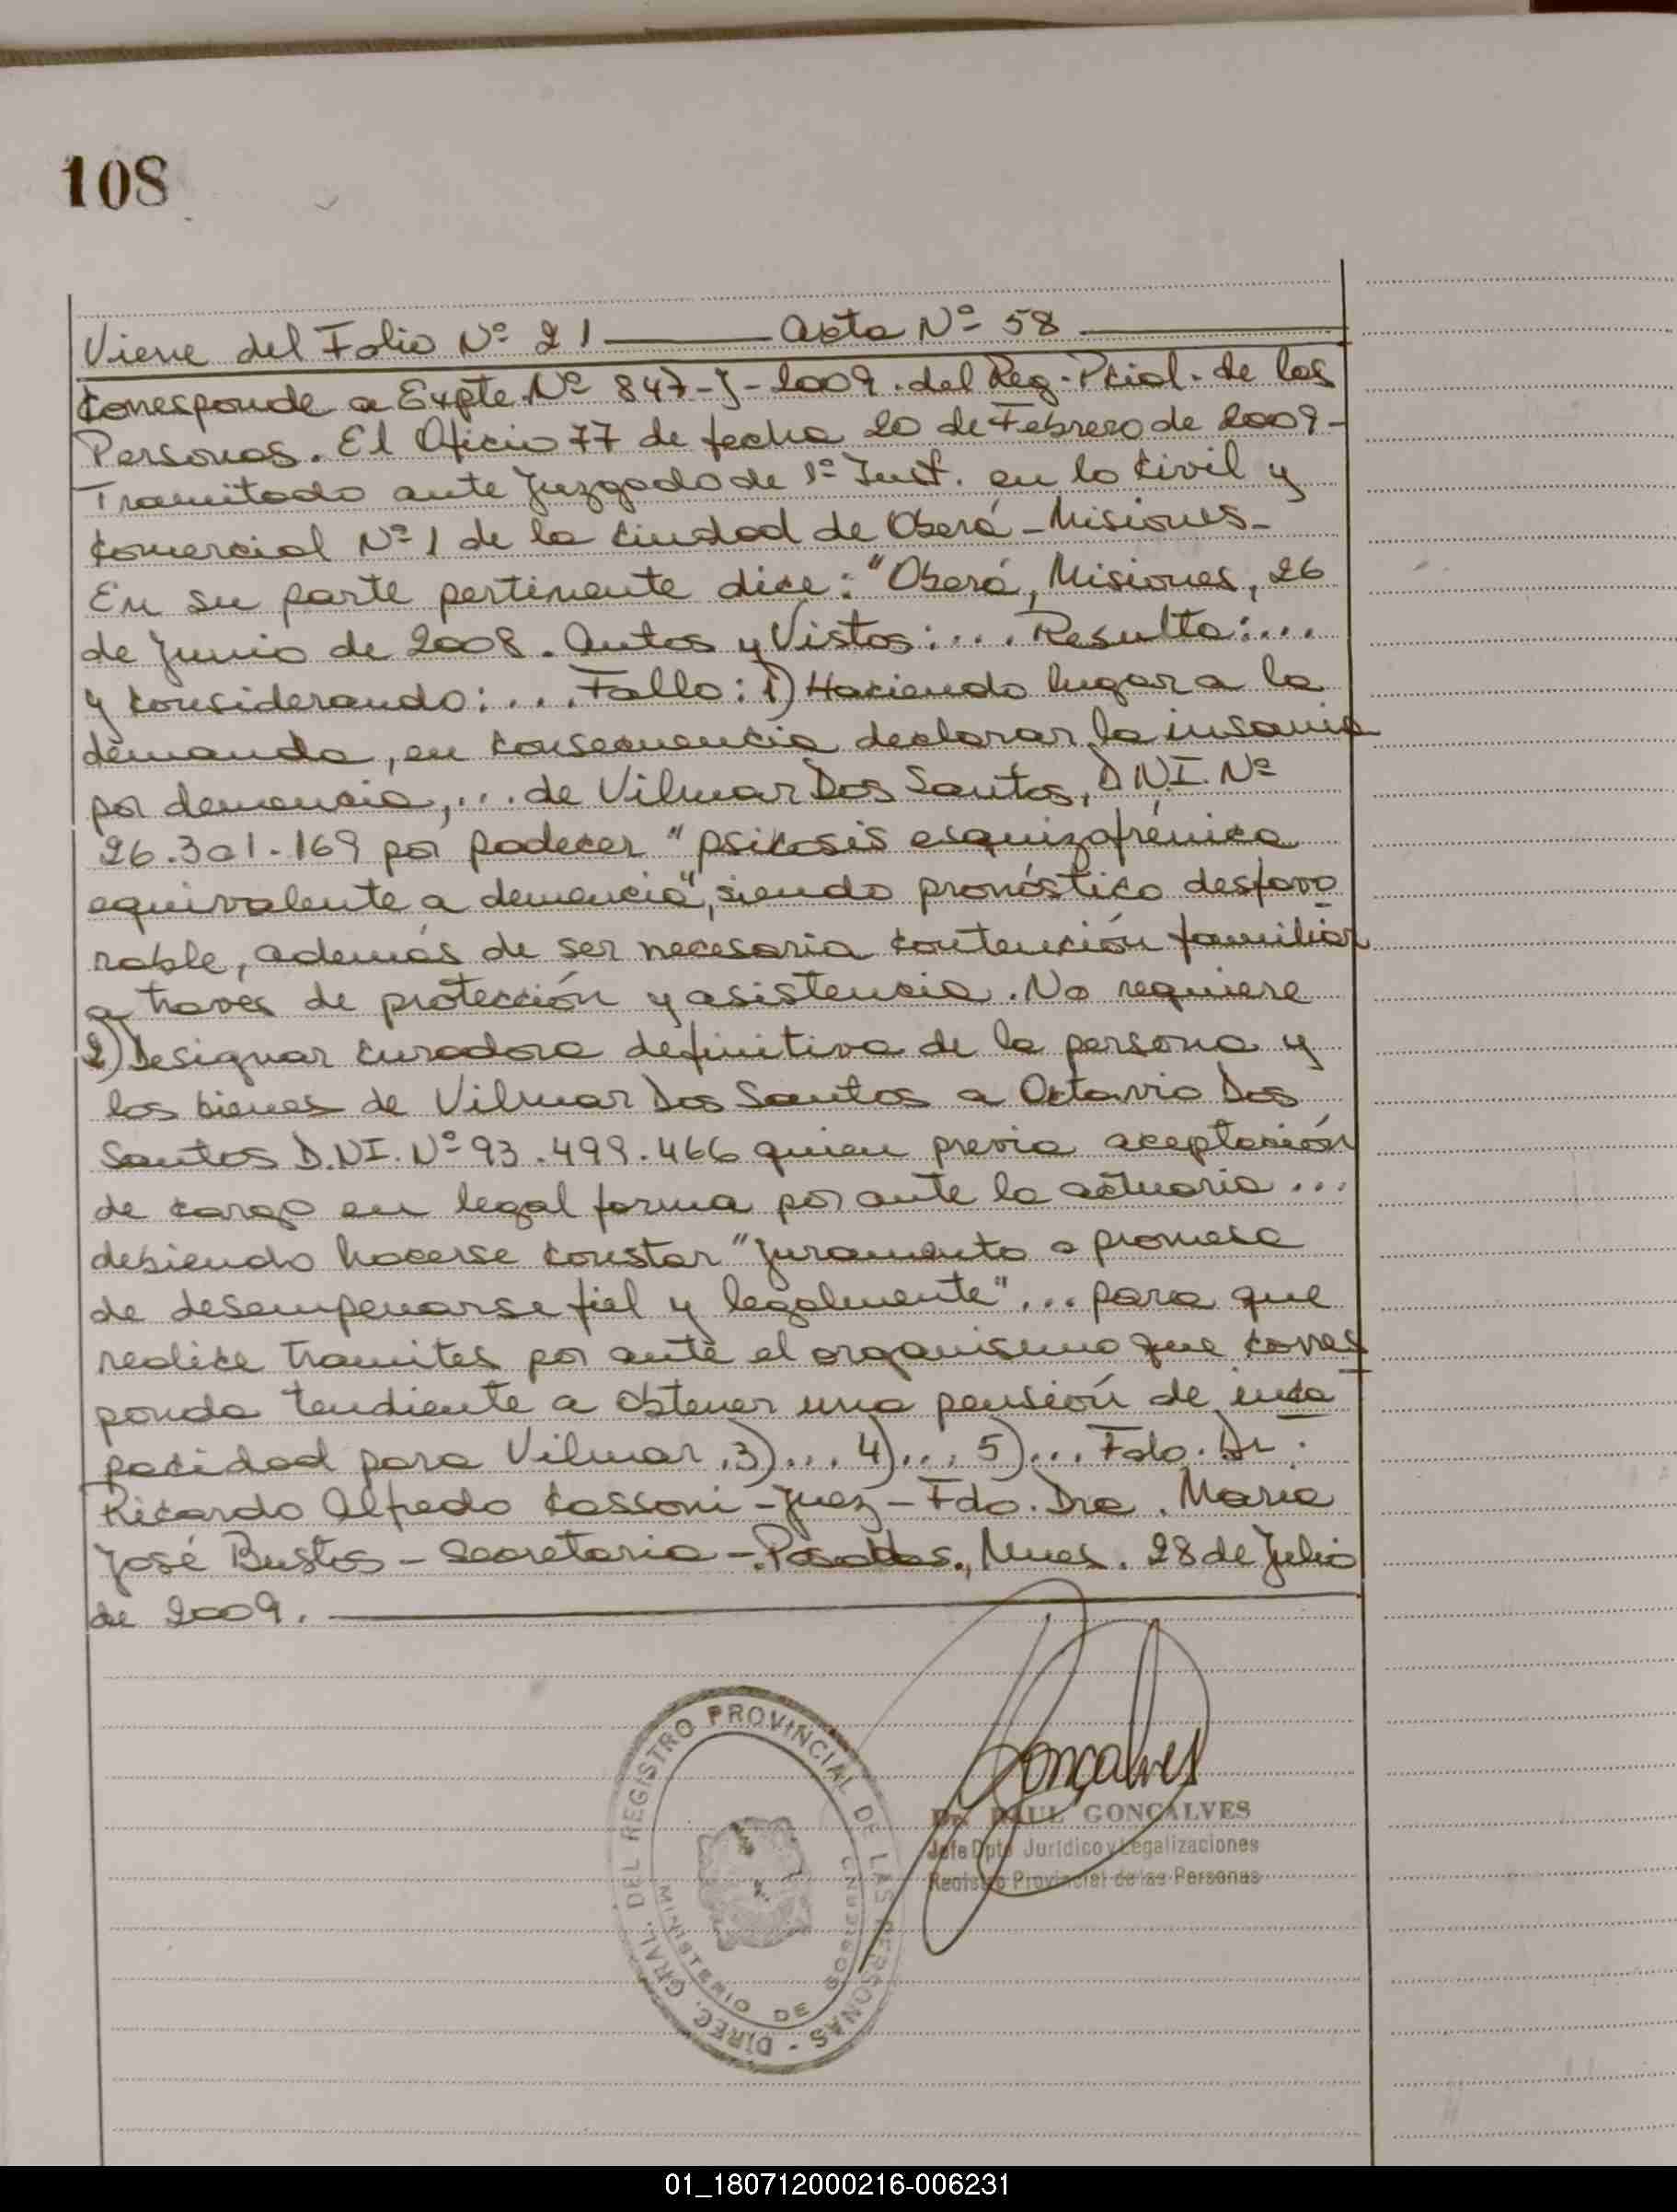 108
Viene del Folio Nº 21 ——— Acta Nº 58 ———
Corresponde a Expte. Nº 847-J-2009. del Reg. Pcial. de las
Personas. El Oficio 77 de fecha 20 de Febrero de 2009-
Tramitado ante Juzgado de 1º Inst. en lo Civil y
Comercial Nº 1 de la Ciudad de Oberá - Misiones-
En su parte pertinente dice: "Oberá, Misiones, 26
de Junio de 2008. Autos y Vistos: ... Resulta: ...
y considerando: ... Fallo: 1) Haciendo lugar a la
demanda, en consecuencia declarar la insania
por demencia, ... de Vilmar Dos Santos, D.N.I. Nº
26.301.169 por padecer "psicosis esquizofrénica
equivalente a demencia", siendo pronóstico desfavo
rable, además de ser necesaria contención familiar
a través de protección y asistencia. No requiere
2) Designar curadora definitiva de la persona y
los bienes de Vilmar Dos Santos a Octavio Dos
Santos D.NI. Nº 93.499.466 quien previa aceptación
de cargo en legal forma por ante la actuaria ...
debiendo hacerse constar "juramento o promesa
de desempenarse fiel y legalmente" ... para que
realice tramites por ante el organismo que corres
ponda tendiente a obtener una pensión de inca
pacidad para Vilmar. 3) ... 4) ... 5) ... Fdo. Dr.
Ricardo Alfredo Cassoni - Juez - Fdo. Dra. Maria
José Bustos - Secretaria - Posadas., Mnes. 28 de Julio
de 2009. ———
DIREC. GRAL. DEL REGISTRO PROVINCIAL DE LAS PERSONAS -
MINISTERIO DE GOBIERNO
Gonçalves
Dr. RAUL GONÇALVES
Jefe Dpto Jurídico y Legalizaciones
Registro Provincial de las Personas
01_180712000216-006231